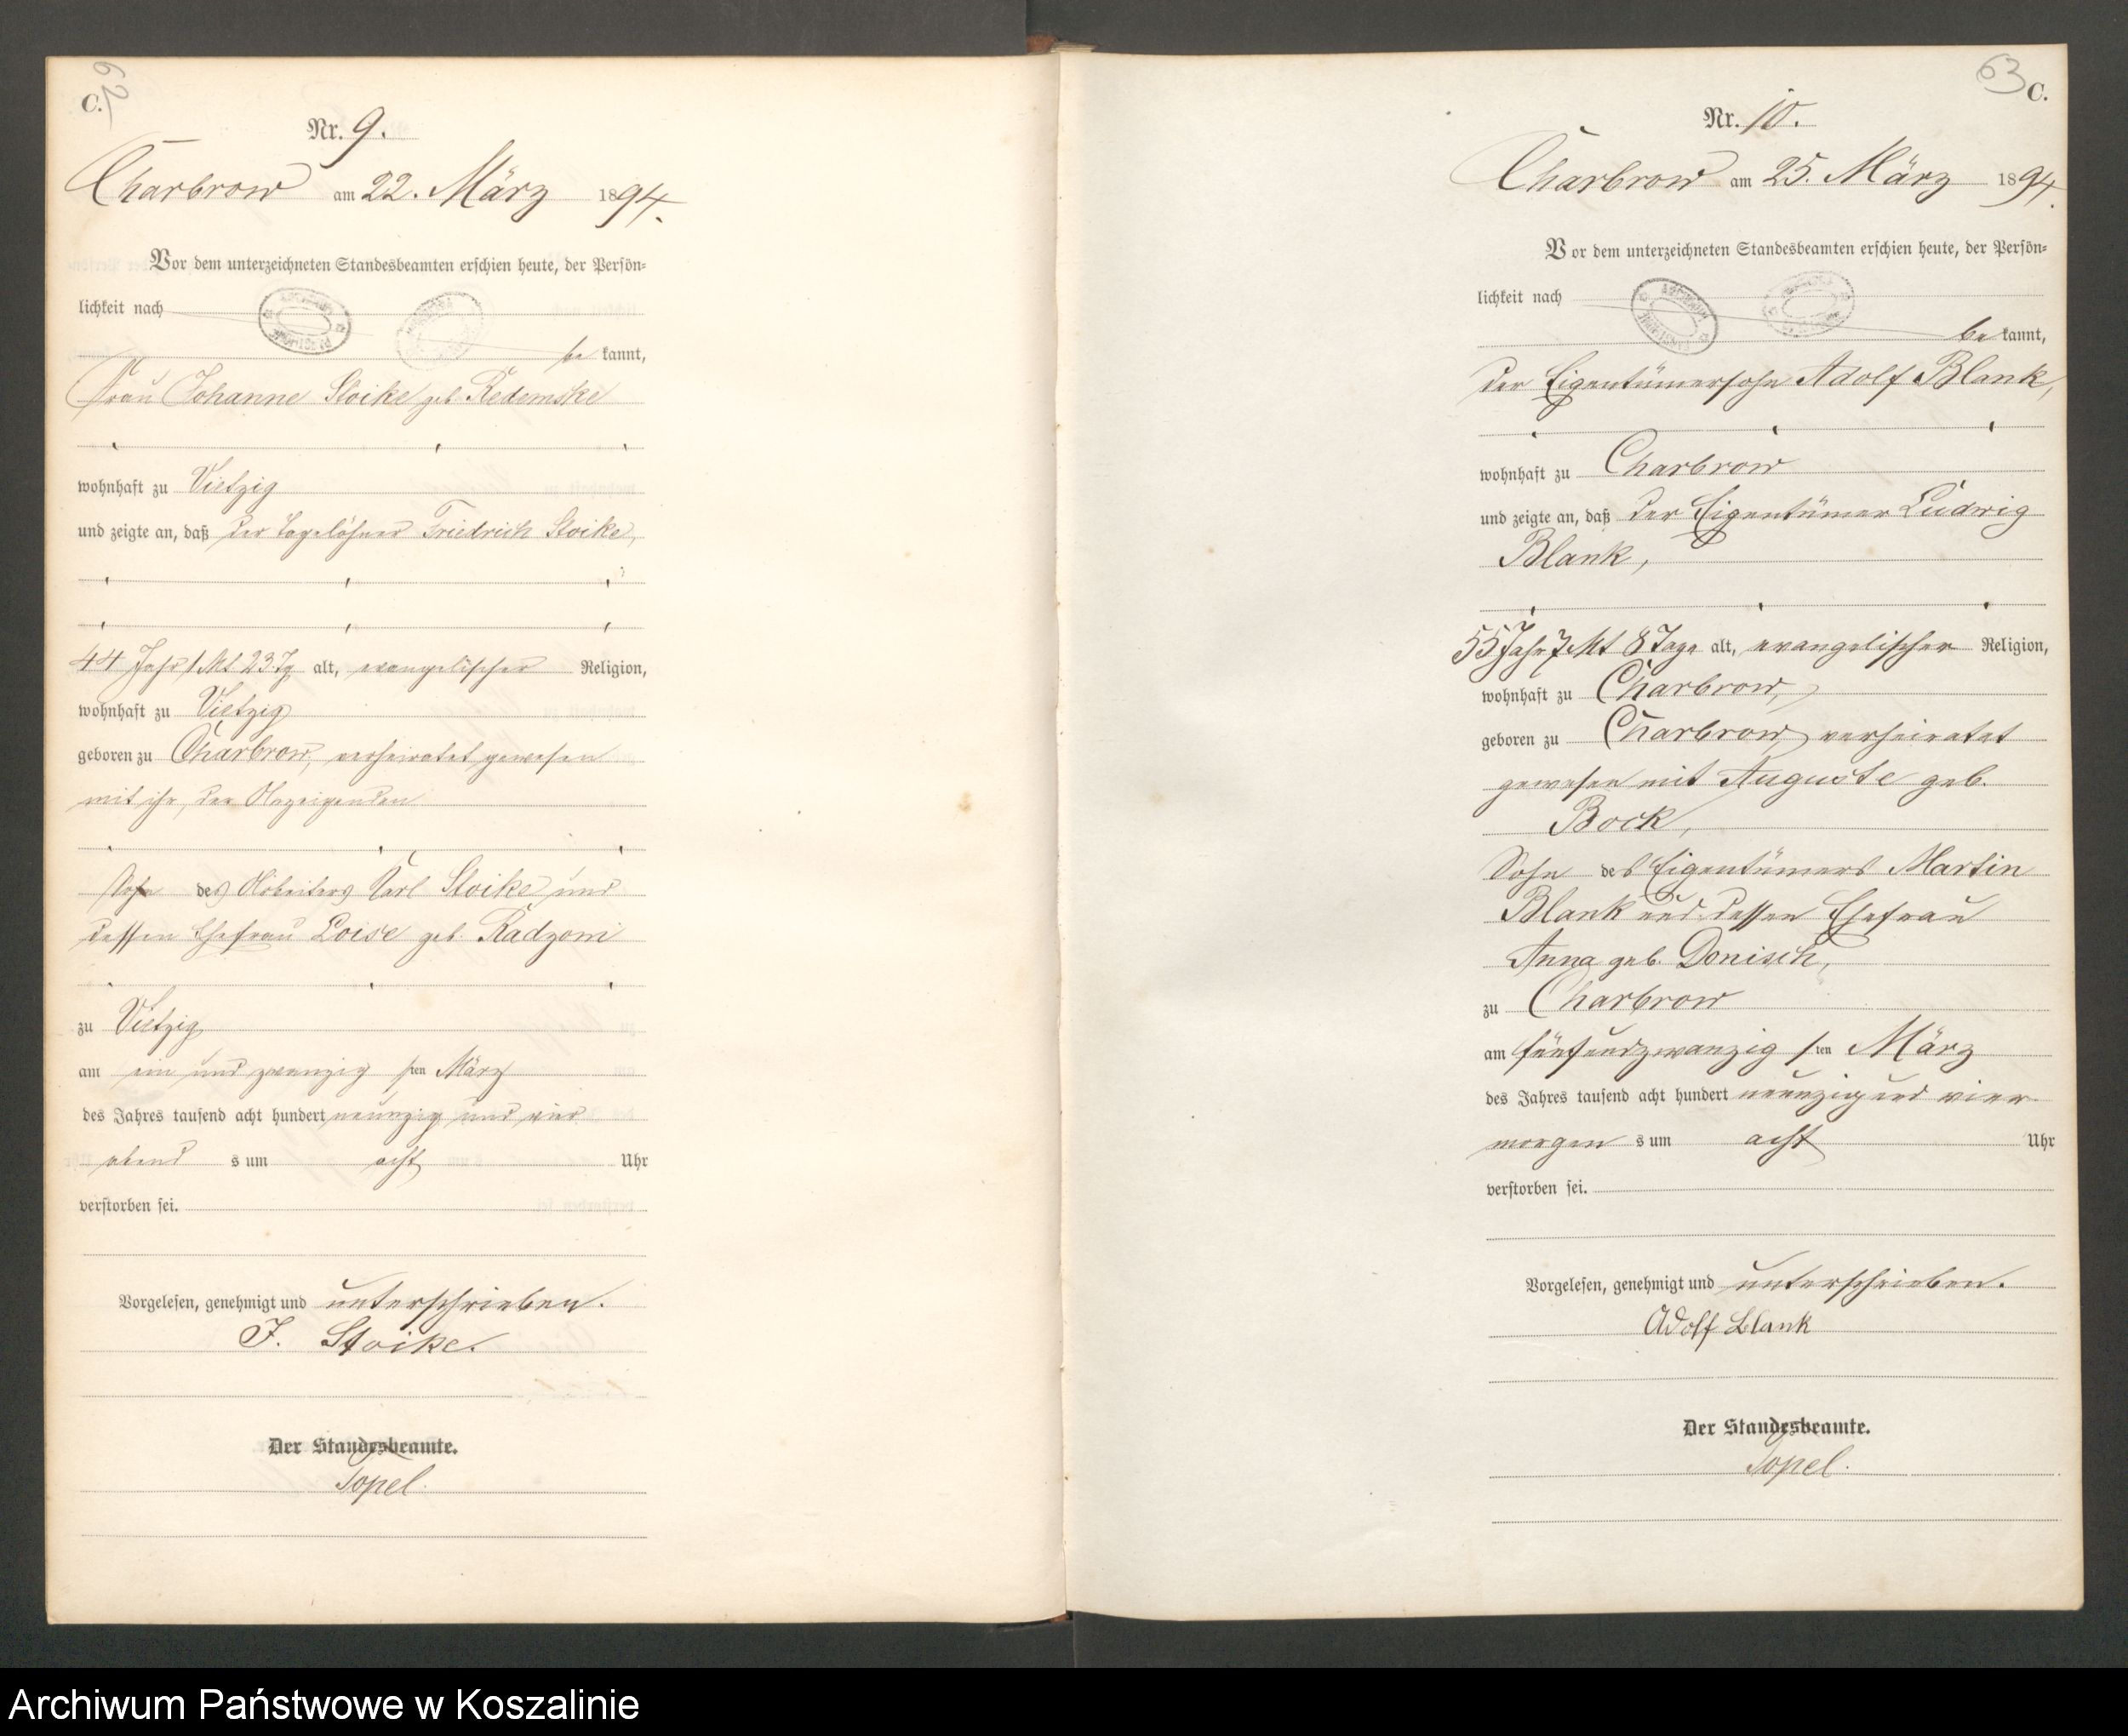 62
C.
Nr. 9.
Charbrow am 22. März 1894.
Vor dem unterzeichneten Standesbeamten erschien heute, der Persön-
lichkeit nach
be kannt,
Frau Johanne Stoike geb. Redemske
wohnhaft zu Vietzig
und zeigte an, daß der Tagelöhner Friedrich Stoike,
44 Jahr 1 Mt 23 Tg alt, evangelischer Religion,
wohnhaft zu Vietzig
geboren zu Charbrow, verheiratet gewesen
mit ihr, der Anzeigenden
Sohn des Arbeiters Karl Stoike und
dessen Ehefrau Loise geb. Radzom
zu Vietzig
am ein und zwanzig sten März
des Jahres tausend acht hundert neunzig und vier
abend s um acht Uhr
verstorben sei.
Vorgelesen, genehmigt und unterschrieben.
J. Stoike.
Der Standesbeamte.
Topel.
63
C.
Nr. 10.
Charbrow am 25. März 1894.
Vor dem unterzeichneten Standesbeamten erschien heute, der Persön-
lichkeit nach
be kannt,
der Eigentümersohn Adolf Blank,
wohnhaft zu Charbrow
und zeigte an, daß der Eigentümer Ludwig
Blank,
55 Jahr 7 Mt 8 Tage alt, evangelischer Religion,
wohnhaft zu Charbrow,
geboren zu Charbrow, verheiratet
gewesen mit Auguste geb.
Bock,
Sohn des Eigentümers Martin
Blank und dessen Ehefrau
Anna geb. Donisch,
zu Charbrow
am fünfundzwanzig sten März
des Jahres tausend acht hundert neunzig und vier
morgen s um acht Uhr
verstorben sei.
Vorgelesen, genehmigt und unterschrieben.
Adolf Blank
Der Standesbeamte.
Topel.
Archiwum Państwowe w Koszalinie